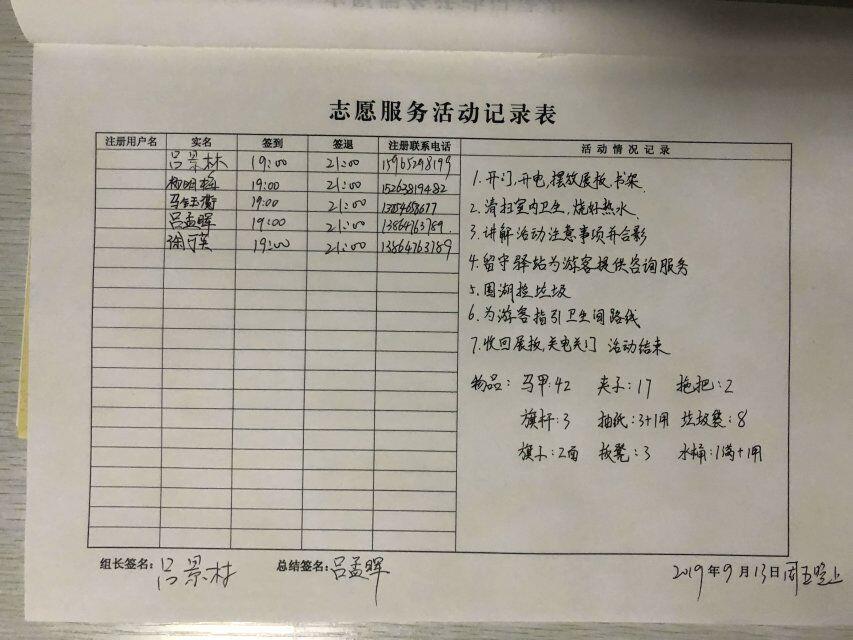 志愿服务活动记录表
注册用户名 实名 签到 签退 注册联系电话 活动情况记录
吕景林 19:00 21:00 15965298199
杨明梅 19:00 21:00 15263819482
19:00 21:00
吕孟晖 19:00 21:00 13864763789
19:00 21:00 13864763189
1.开门,开电,摆放展板,书架
2.清扫室内卫生,烧好热水
3.讲解活动注意事项并合影
4.留守驿站为游客提供咨询服务
5.围湖捡垃圾
6.为游客指引卫生间路线
7.收回展板,关电关门 活动结束
物品:马甲:42 夹子:17 拖把:2
旗杆:3 抽纸:3+1用 垃圾袋:8
旗:2面 板凳:3 水桶:1满+1用
组长签名:吕景林 总结签名:吕孟晖 2019年9月13日周五晚上